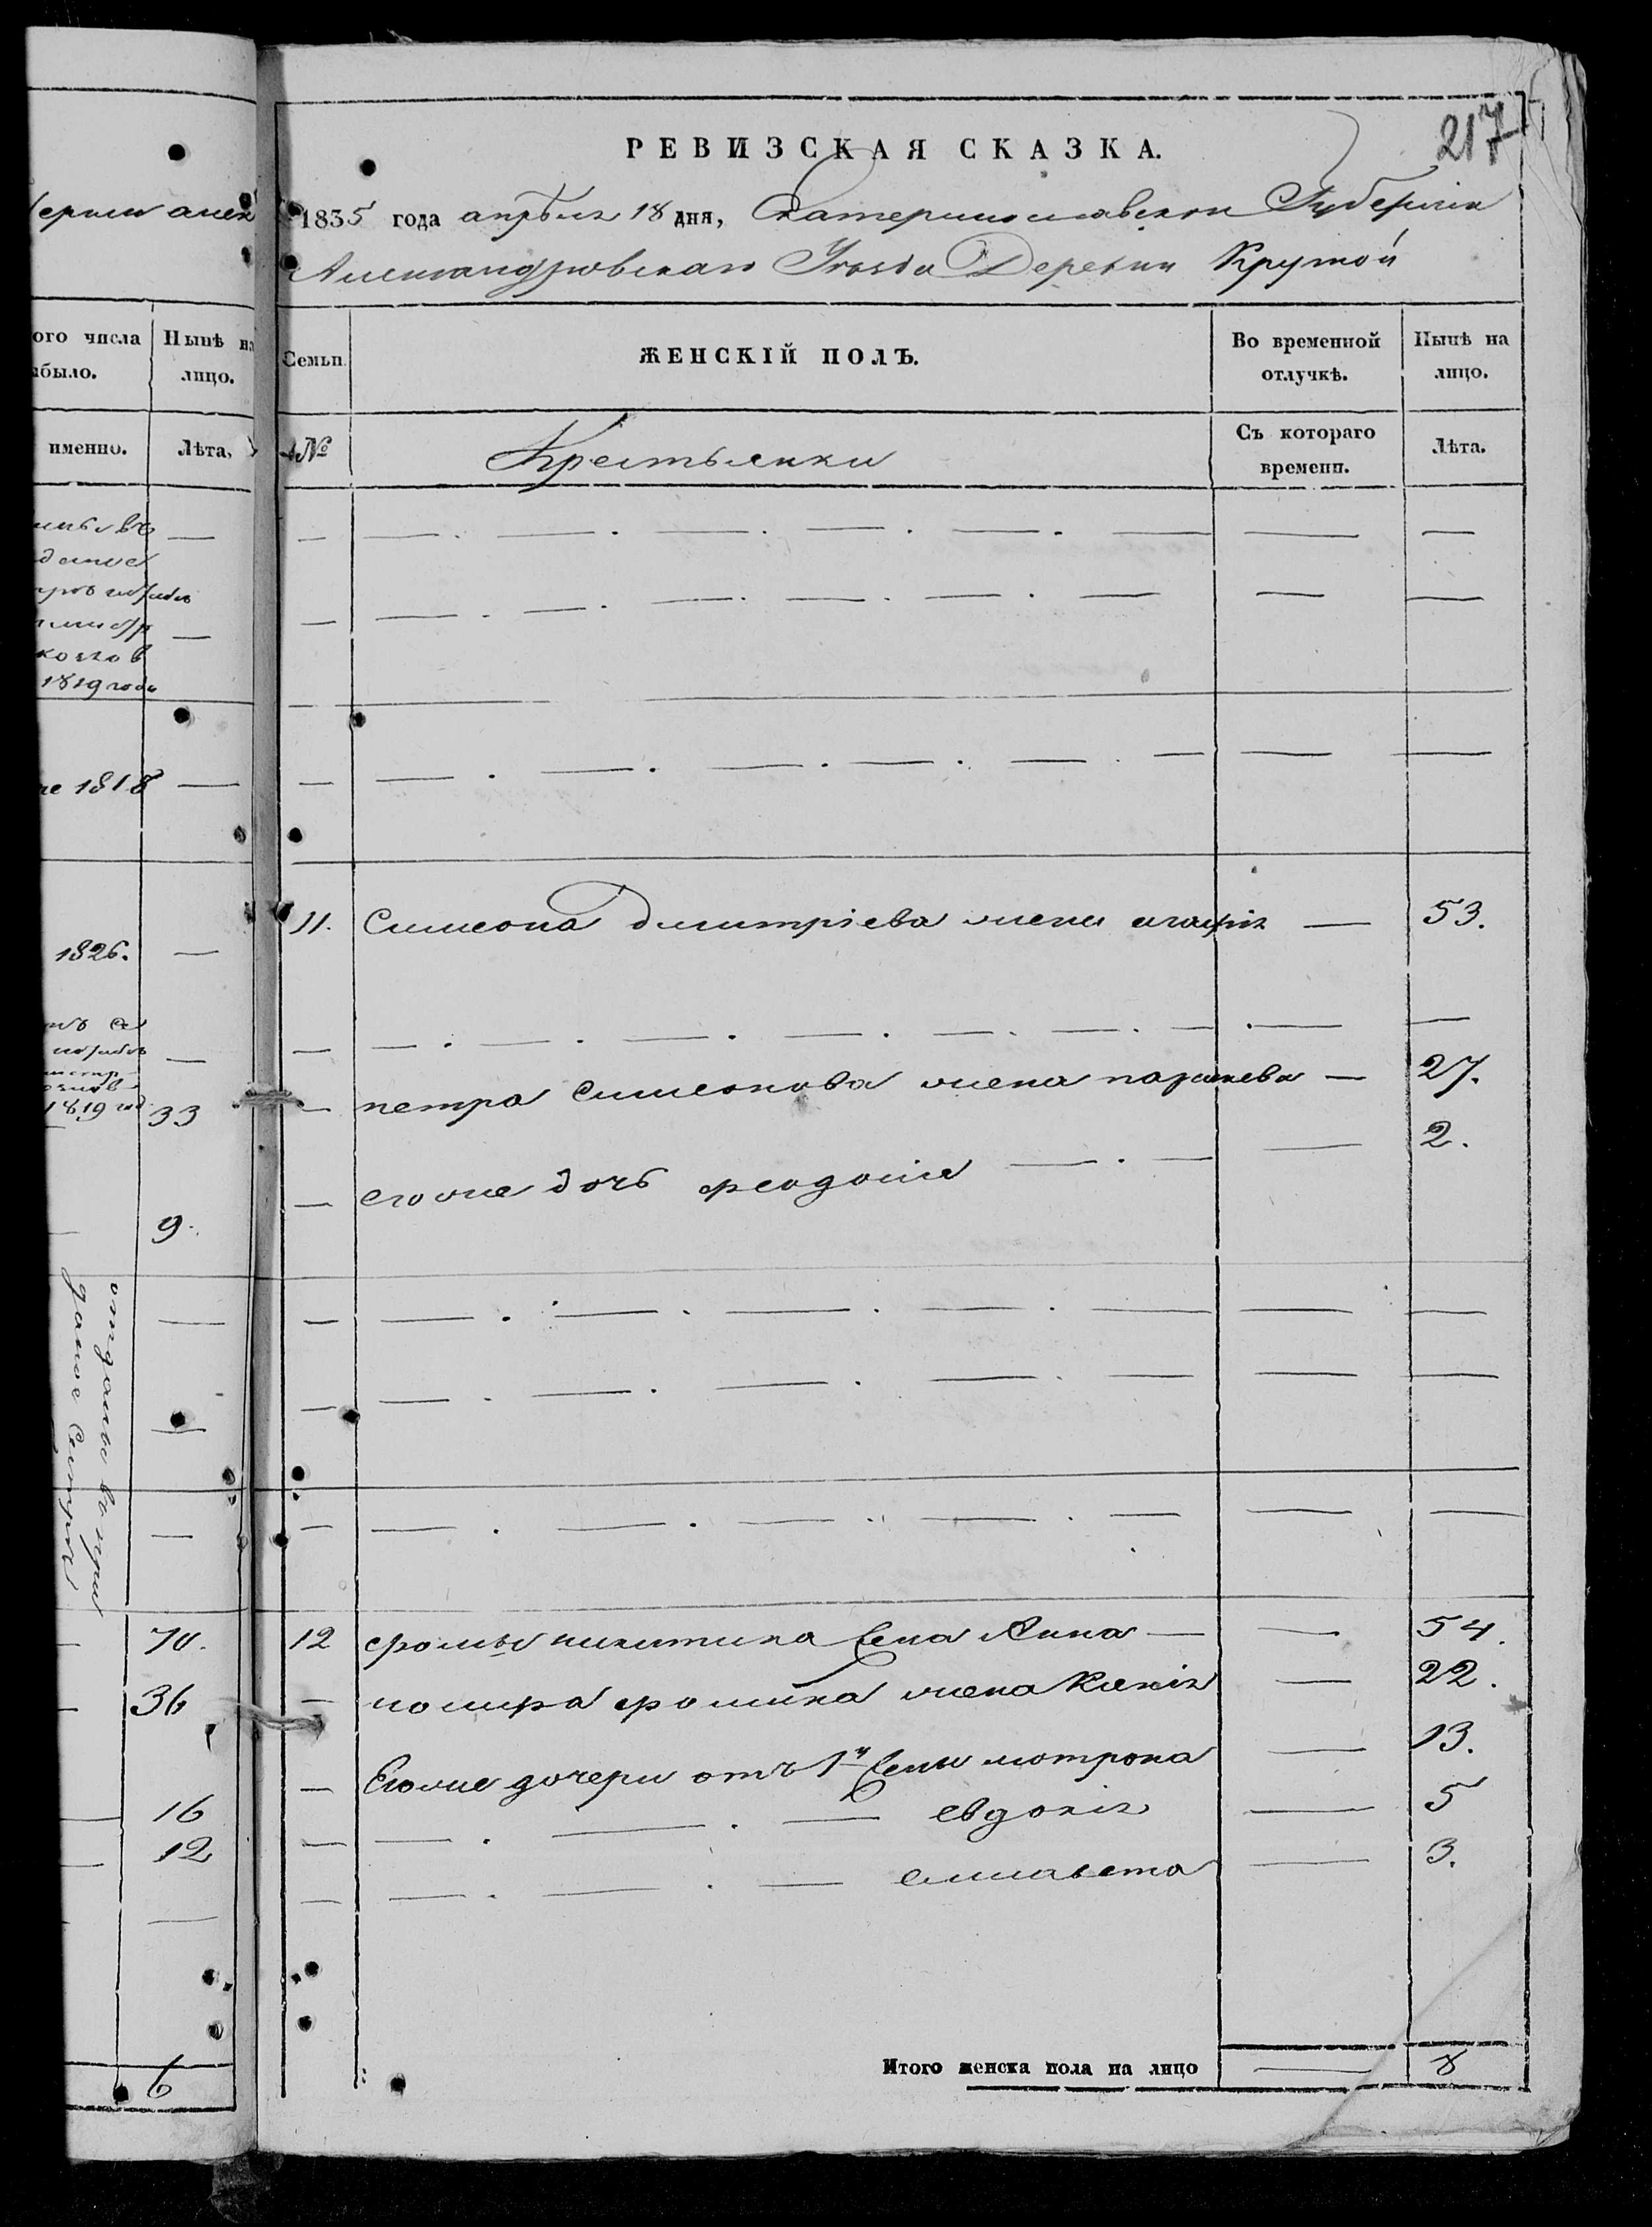 ерніи алек
ого числа
ыбыло.
Нынѣ на
лицо.
именно.
Лѣта.
—
—
1819 года
—
1818 —
1826. —
—
1819 год
33
9.
—
отданъ въ
—
—
70.
36
16
12
—
6
217
РЕВИЗСКАЯ СКАЗКА.
1835 года апреля 18 дня, Екатеринославской Губерніи
Александровскаго Уезда Деревни Крутой
Семьи
ЖЕНСКІЙ ПОЛЪ.
Во временной
отлучкѣ.
Нынѣ на
лицо.
№
Крестьянки
Съ котораго
времени.
Лѣта.
— — . — . — . — . — . — — —
— — . — . — . — . — . — — —
— — . — . — . — . — — —
11. Симеона Димитріева жена агафія — 53.
— — . — . — . — . — . — . — —
— петра Симеонова жена параскева — 27.
— его же дочь феодосія — . — — 2.
— — . — . — . — . — — —
— — . — . — . — . — — —
— — . — . — . — . — — —
12 фомы никитина жена Анна — — 54.
— фомина жена Ксенія — 22.
— Его же дочери отъ 1й жены мотрона — 13.
— — . — . — евдокія — 5
— — . — . — елисавета — 3.
Итого женска пола на лицо — 8